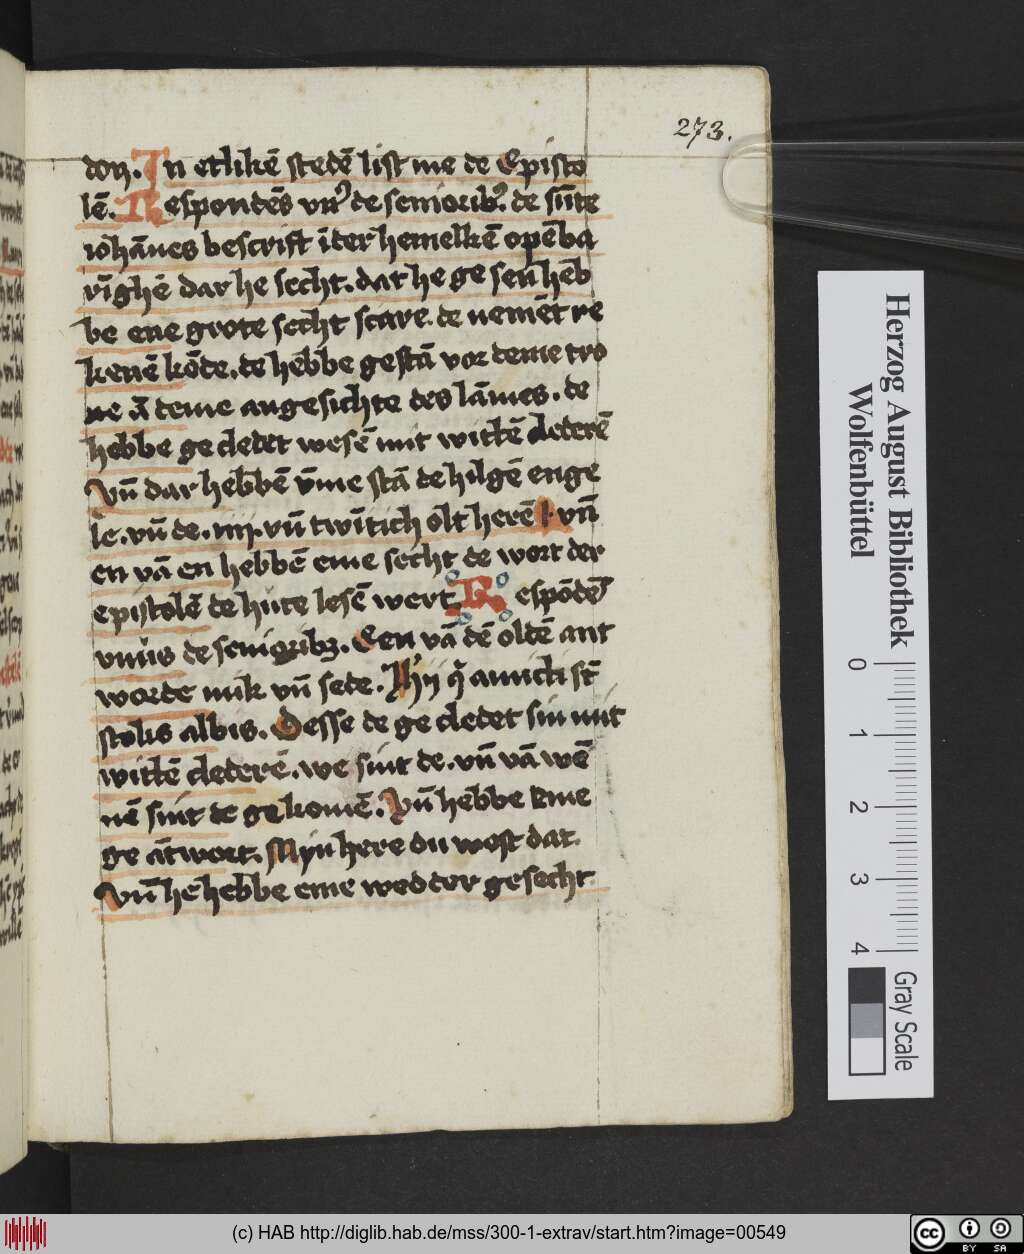 273.
don. In etlikē stedē list me de Episto
lē. Respondēs vn' de seniorib'. de sūte
iohānes bescrift ī der hemelkē opēba
rīghē dar he secht. dat he ge sen hēb
be ene grote secht scare. de nemēt re
kenē kōde. de hebbe gestā vor deme tro
ne ā deme angesichte des lāmes. de
hebbe ge cledet wesē mit wittē clederē
Vn̄ dar hebbē v̄me stā de hilgē enge
le. vn̄ de. iiij. vn̄ twītich olt herē vn̄
en vā en hebbē eme secht de wort der
epistolē de hute lesē wert Respōdēs
vnus de seniorib3. Een vā dē oldē ant
worde mik vn̄ sede. Hij q̇ amicti st̄
stolis albis. Desse de ge cledet sin mit
wittē clederē. we sint de. vn̄ vā wē
nē sint de ge komē. Vn̄ hebbe eme
ge ātwort. Myn here du west dat.
Vn̄ he hebbe eme wedder gesecht
Herzog August Bibliothek
Wolfenbüttel
0 1 2 3 4
Gray Scale
(c) HAB http://diglib.hab.de/mss/300-1-extrav/start.htm?image=00549
cc BY SA